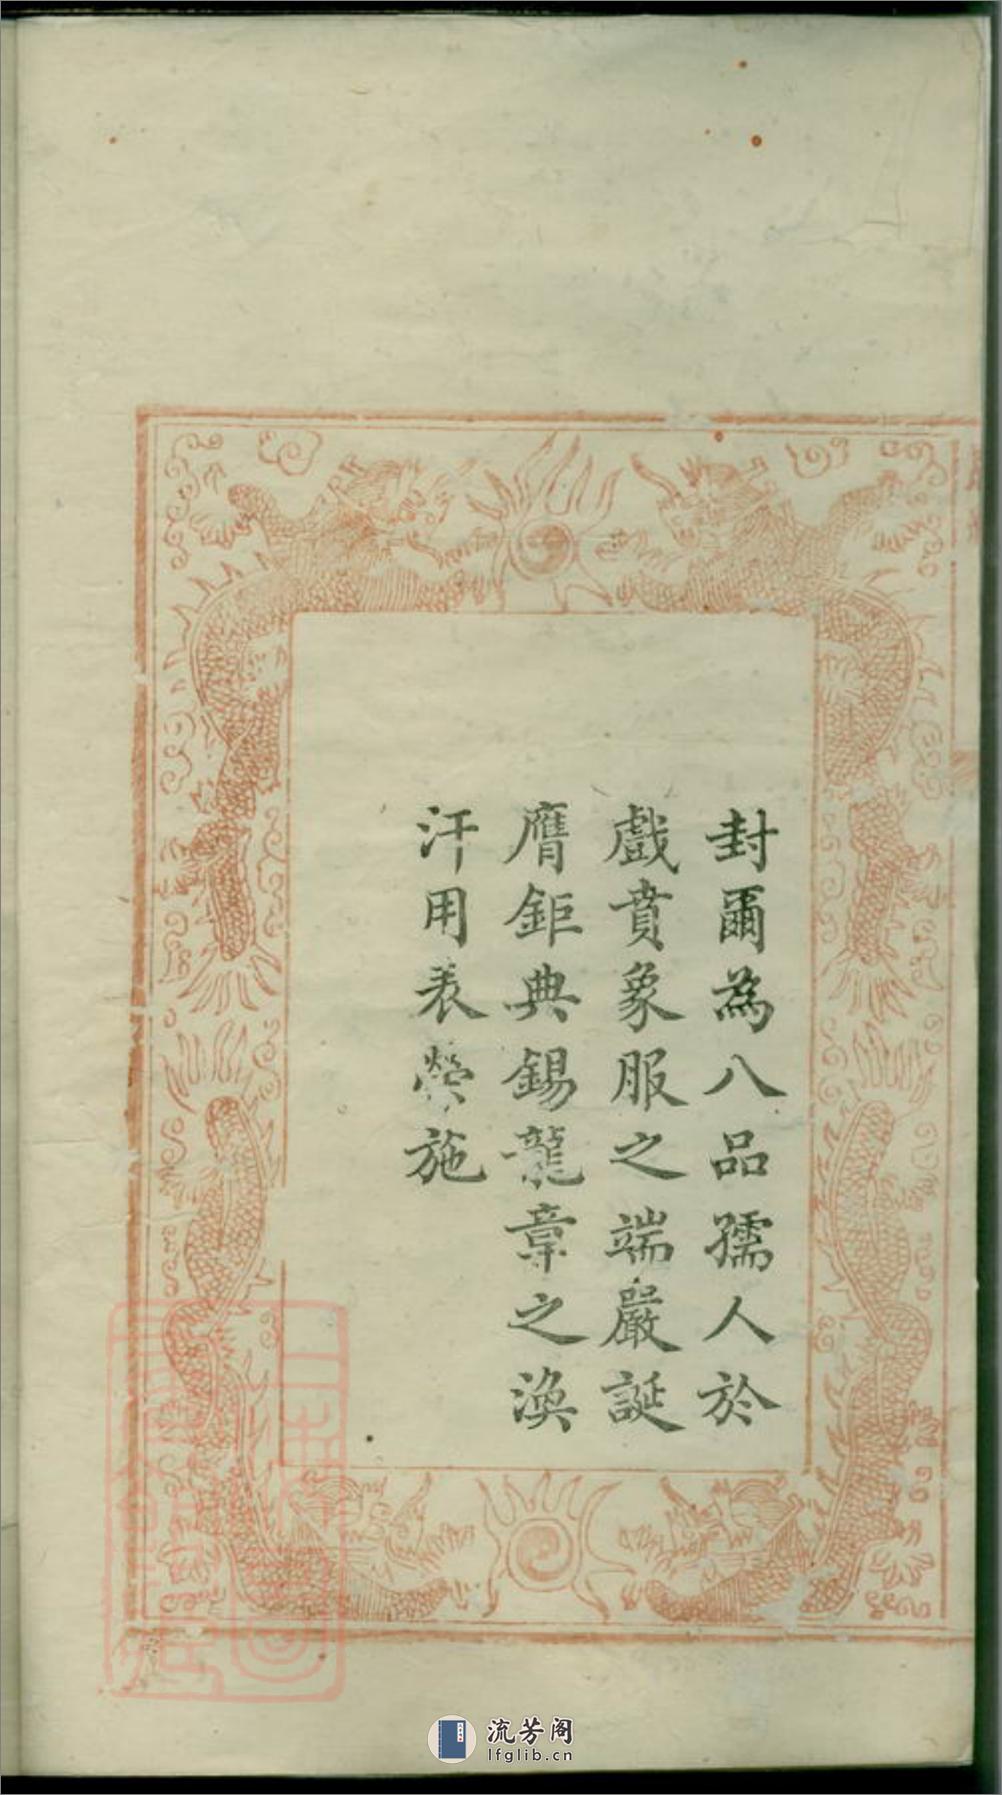 封爾為八品孺人於
戲賁象服之端嚴誕
膺鉅典錫龍章之渙
汗用表榮施
流芳阁
lfglib.cn